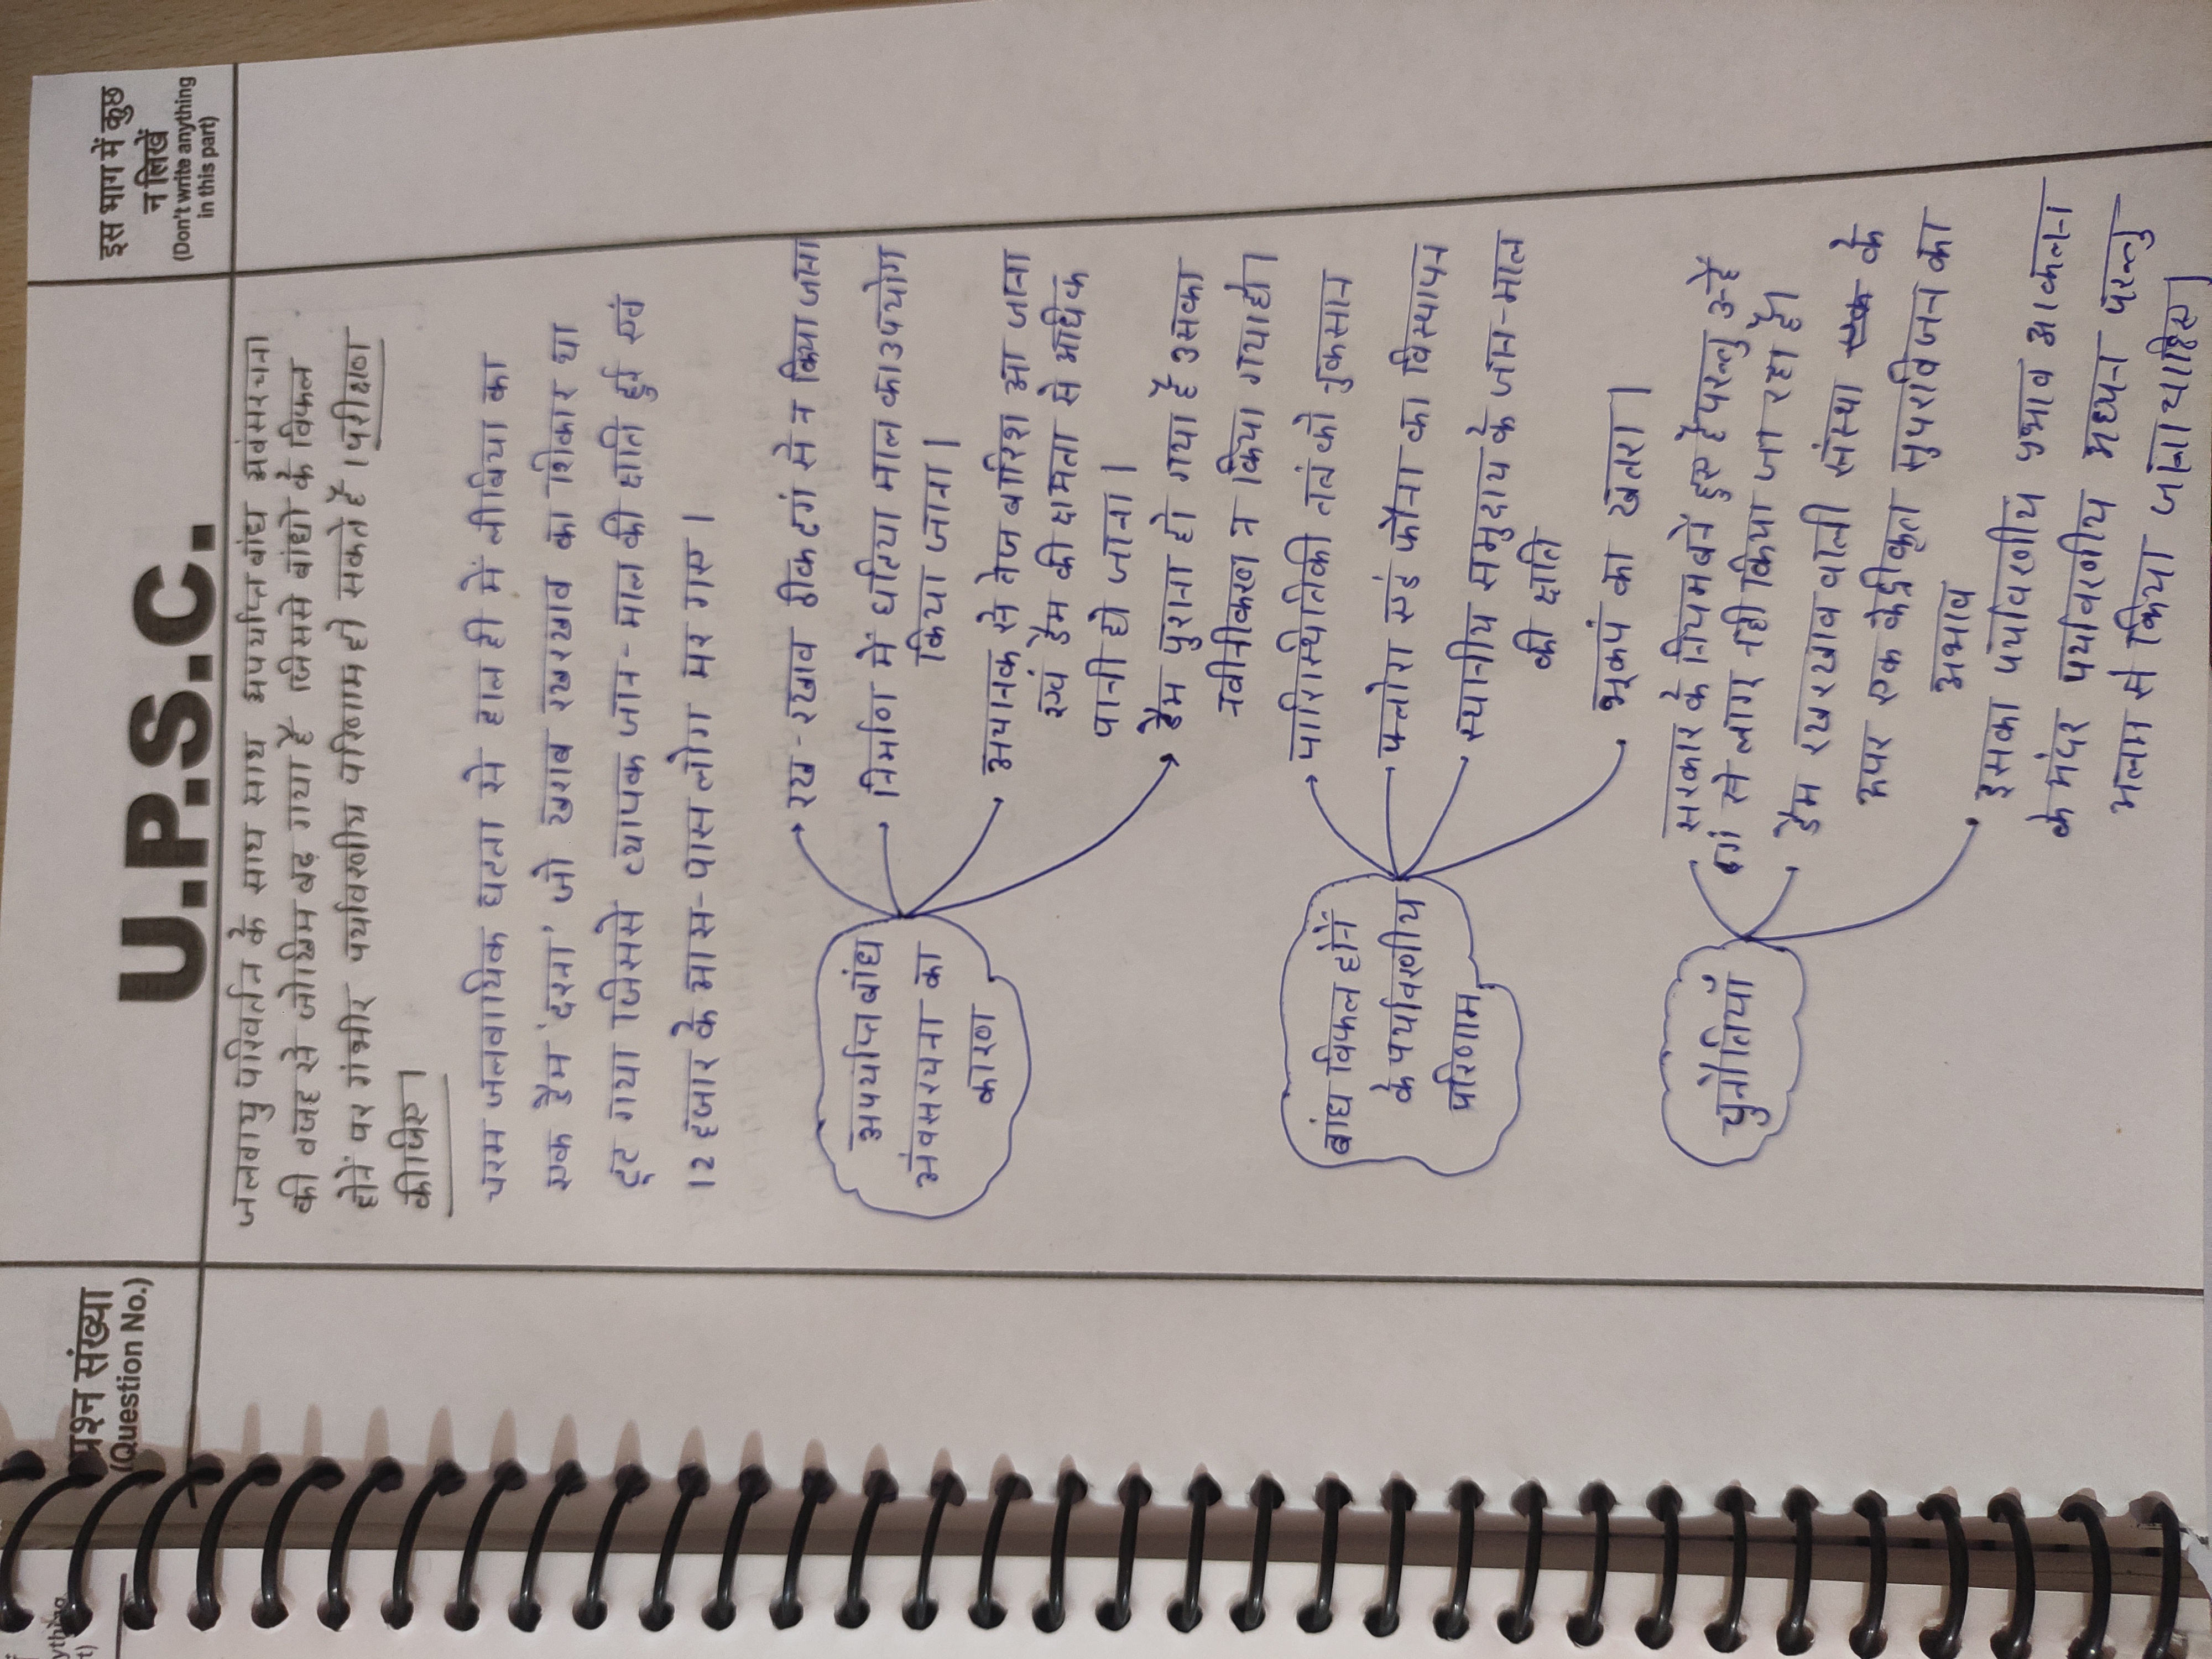 प्रश्न संख्या
(Question No.)
U.P.S.C.
इस भाग में कुछ
न लिखें
(Don't write anything
in this part)
जलवायु परिवर्तन के साथ साथ अपर्याप्त बांध अवंसरचना
की वजह से जोखिम बढ़ गया है जिससे बांधो के विफल
होनें पर गंभीर पर्यावरणीय परिणाम हो सकते हैं। परीक्षण
कीजिए।
चरम जलवायिक घटना से हाल ही में लीबिया का
एक डैम 'दरना' जो खराब रखरखाव का शिकार था
टूट गया जिससे व्यापक जान-माल की क्षति हुई एवं
12 हजार के आस-पास लोग मर गए।
अपर्याप्त बांध
अंवसरचना का
कारण
रख-रखाव ठीक ढगं से न किया जाना
निर्माण में घटिया माल का उपयोग
किया जाना।
अचानक से तेज बारिश आ जाना
एवं डैम की क्षमता से अधिक
पानी हो जाना।
डैम पुराना हो गया है उसका
नवीनीकरण न किया गया हो।
बांध विफल होनें
के पर्यावरणीय
परिणाम
पारिास्थितिकी तत्रं को नुकसान
फ्लोरा एडं फौना का विस्थापन
स्थानीय समुदाय के जान-माल
की क्षति
भूकपं का खतरा।
चुनौतियाँ
सरकार के नियम बनें हुए हैं परन्तु उन्हें
ढगं से लागू नही किया जा रहा है।
डैम रखरखाव वाली संस्था एक के
अपर एक केद्रींकृत सुपरविजन का
अभाव
इसका पर्यावरणीय प्रभाव आकलन
के अंदर पर्यावरणीय अध्यन परन्तु
अलग से किया जाना चाहिए।